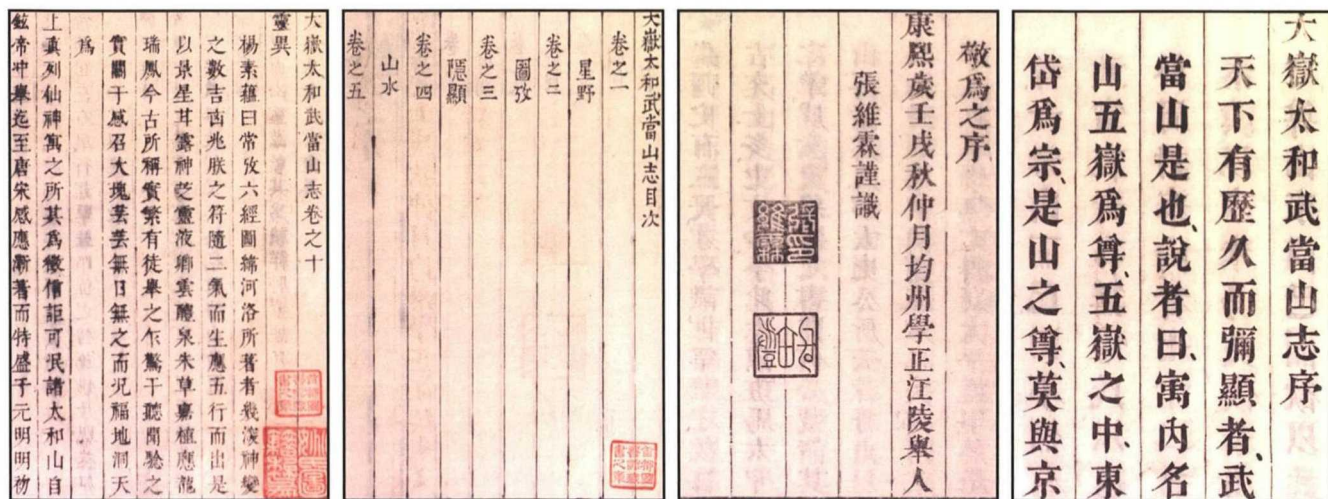 大嶽太和武當山志序
天下有歷久而彌顯者、武
當山是也、說者曰、寓內名
山五嶽爲尊、五嶽之中、東
岱爲宗、是山之尊、莫與京
敬爲之序
康熙歲壬戌秋仲月均州學正江陵舉人
張維霖謹識
張印維霖
大嶽太和武當山志目次
卷之一
星野
卷之二
圖攷
卷之三
隱顯
卷之四
山水
卷之五
大嶽太和武當山志卷之十
靈異
楊素蘊曰常攷六經圖緯河洛所著者幾湥神變
之數吉凶兆朕之符隨二氣而生應五行而出是
以景星甘露神芝靈液卿雲醴泉朱草嘉植應龍
瑞鳳今古所稱實繁有徒舉之乍驚于聽聞驗之
實關于感召大塊芸芸無日無之而況福地洞天
爲
上眞列仙神寓之所其爲徵信詎可泯諸太和山自
鉉帝中舉迄至唐宋感應漸著而特盛于元明明初